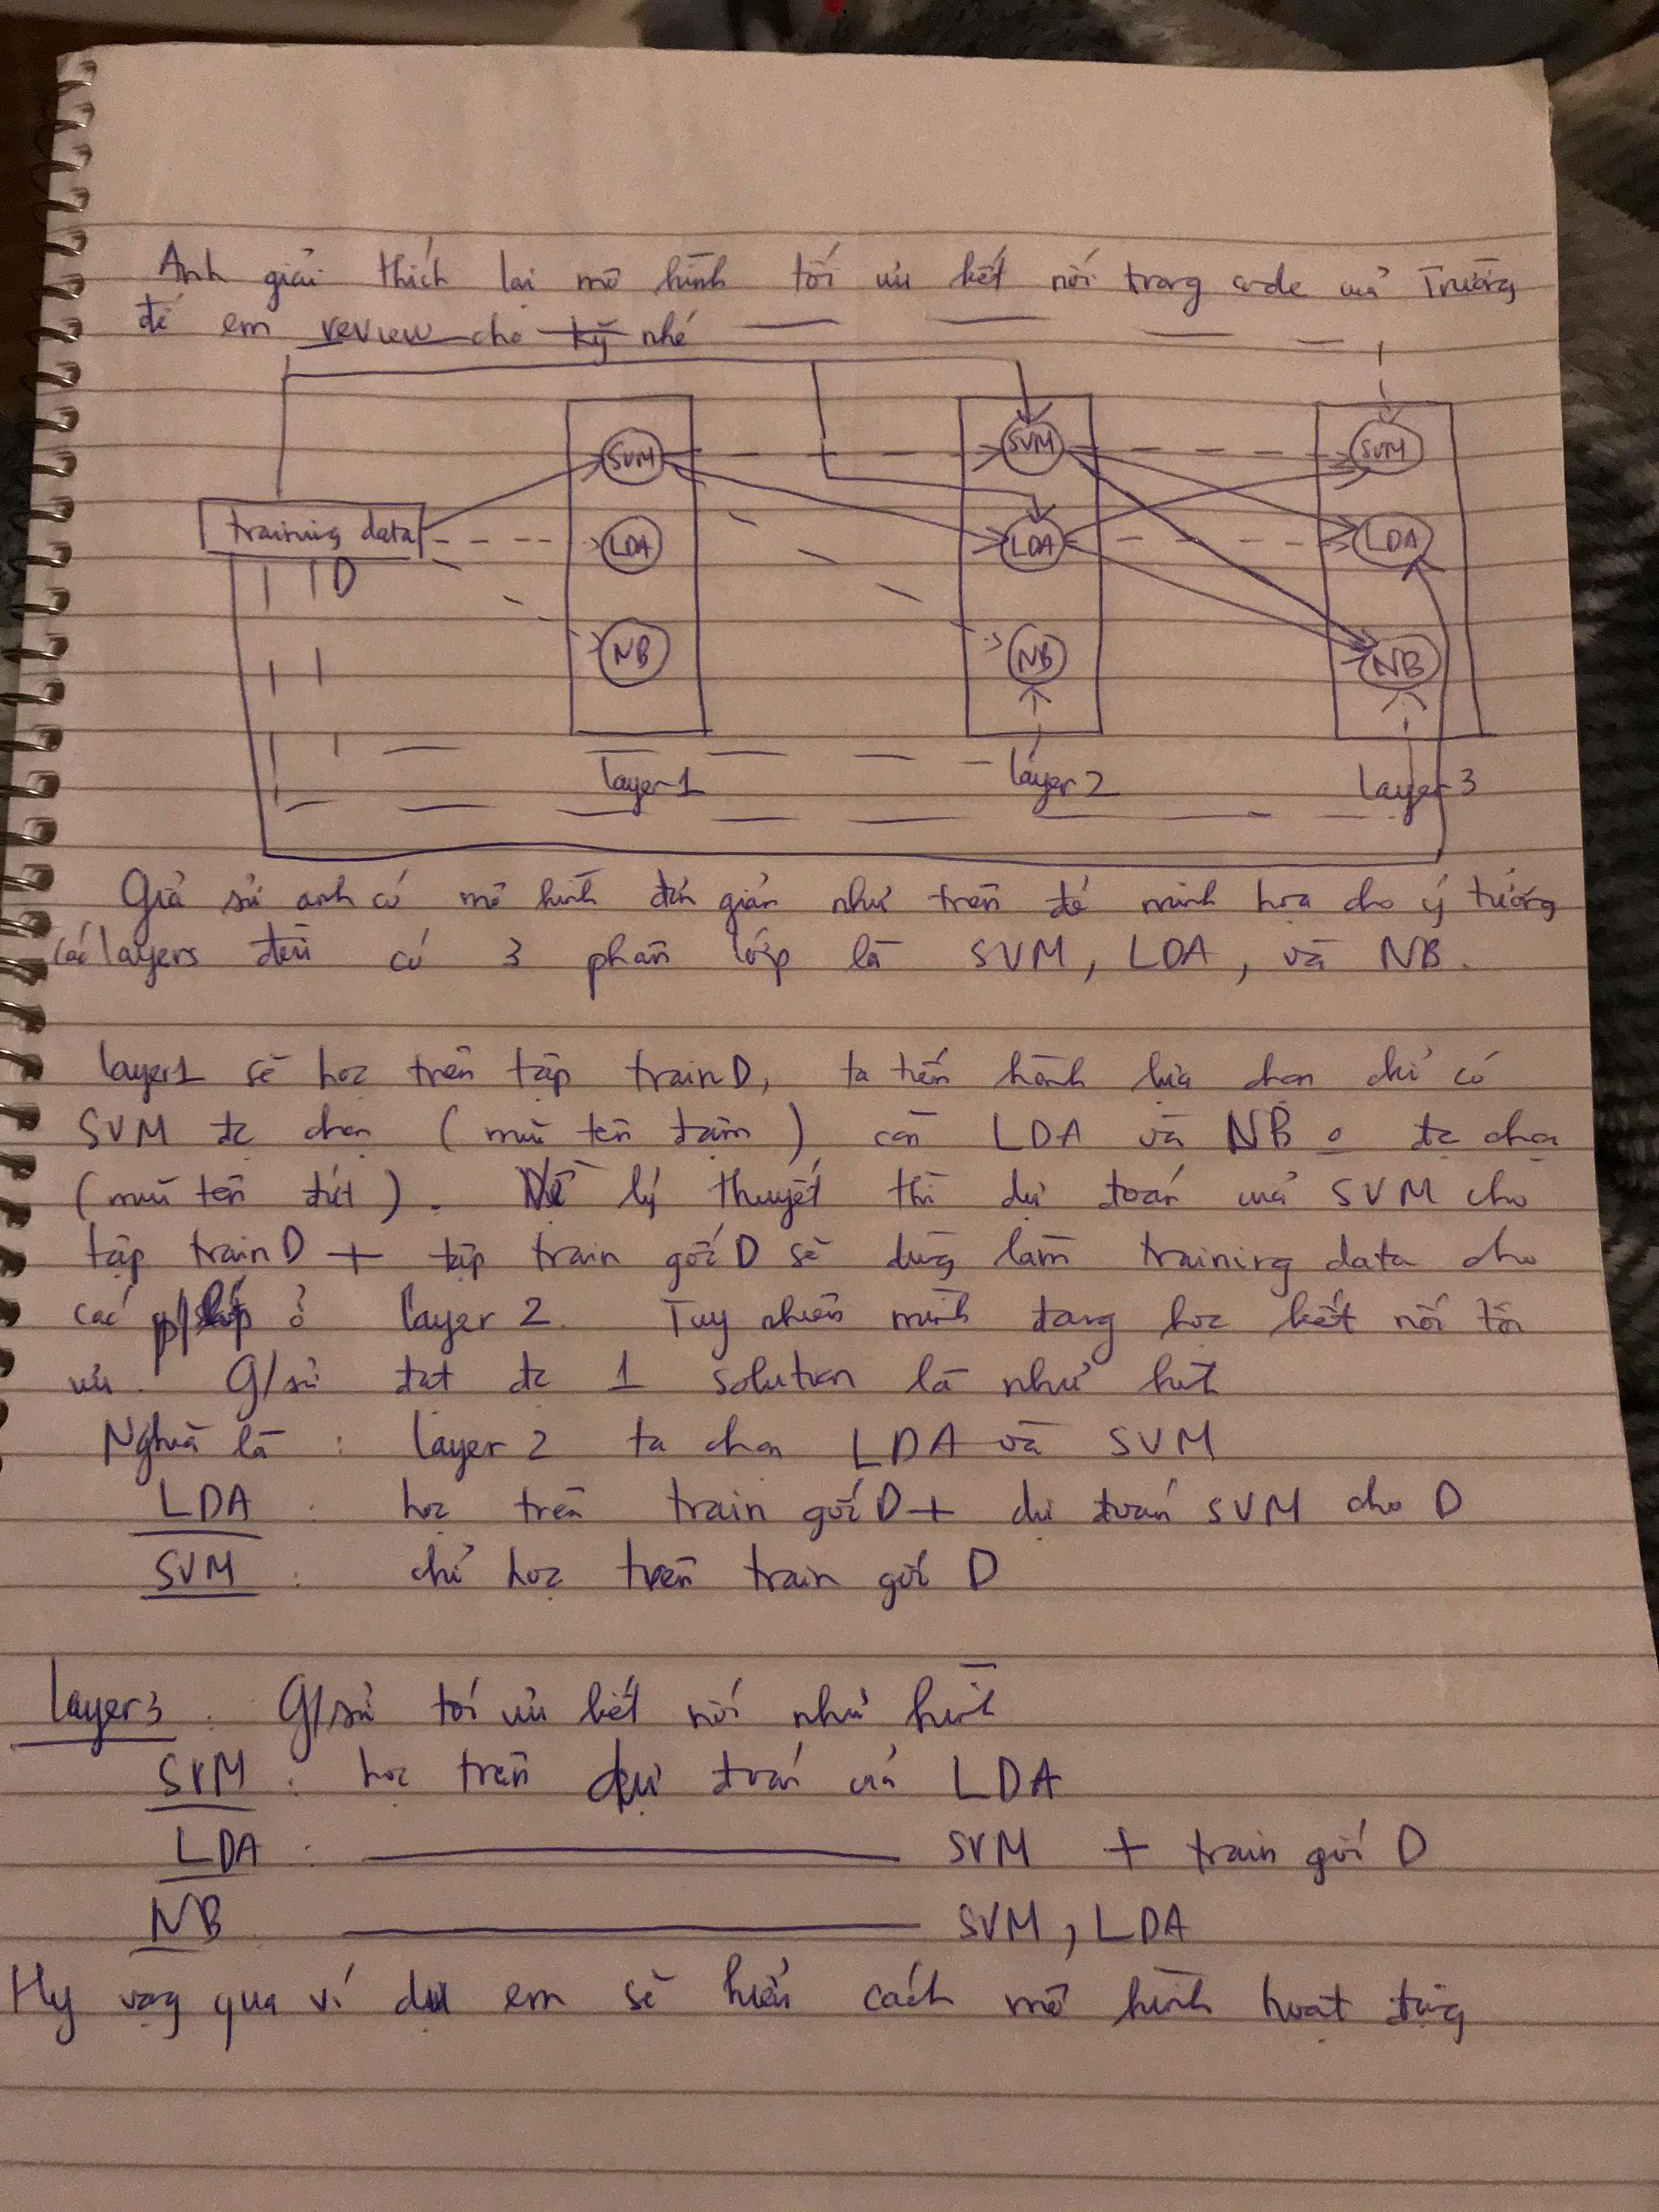 Anh giải thích lại mô hình tối ưu kết nối trong code của Trường
để em review cho kỹ nhé
SVM SVM SVM
training data LDA LDA LDA
D
NB NB NB
layer1 layer2 layer3
Giả sử anh có mô hình đơn giản như trên để minh họa cho ý tưởng
các layers đều có 3 phân lớp là SVM, LDA, và NB.
layer1 sẽ học trên tập train D, ta tiến hành lựa chọn chỉ có
SVM đc chọn (mũi tên đậm) còn LDA và NB o đc chọn
(mũi tên đứt). Về lý thuyết thì dự đoán của SVM cho
tập train D + tập train gốc D sẽ dùng làm training data cho
các p/lớp ở layer 2. Tuy nhiên mình đang học kết nối tối
ưu. G/sử đạt đc 1 solution là như hình
Nghĩa là : layer 2 ta chọn LDA và SVM
LDA : học trên train gốc D + dự đoán SVM cho D
SVM : chỉ học trên train gốc D
layer3 : G/sử tối ưu kết nối như hình
SVM : học trên dự đoán của LDA
LDA : SVM + train gốc D
NB SVM, LDA
Hy vọng qua ví dụ em sẽ hiểu cách mô hình hoạt động